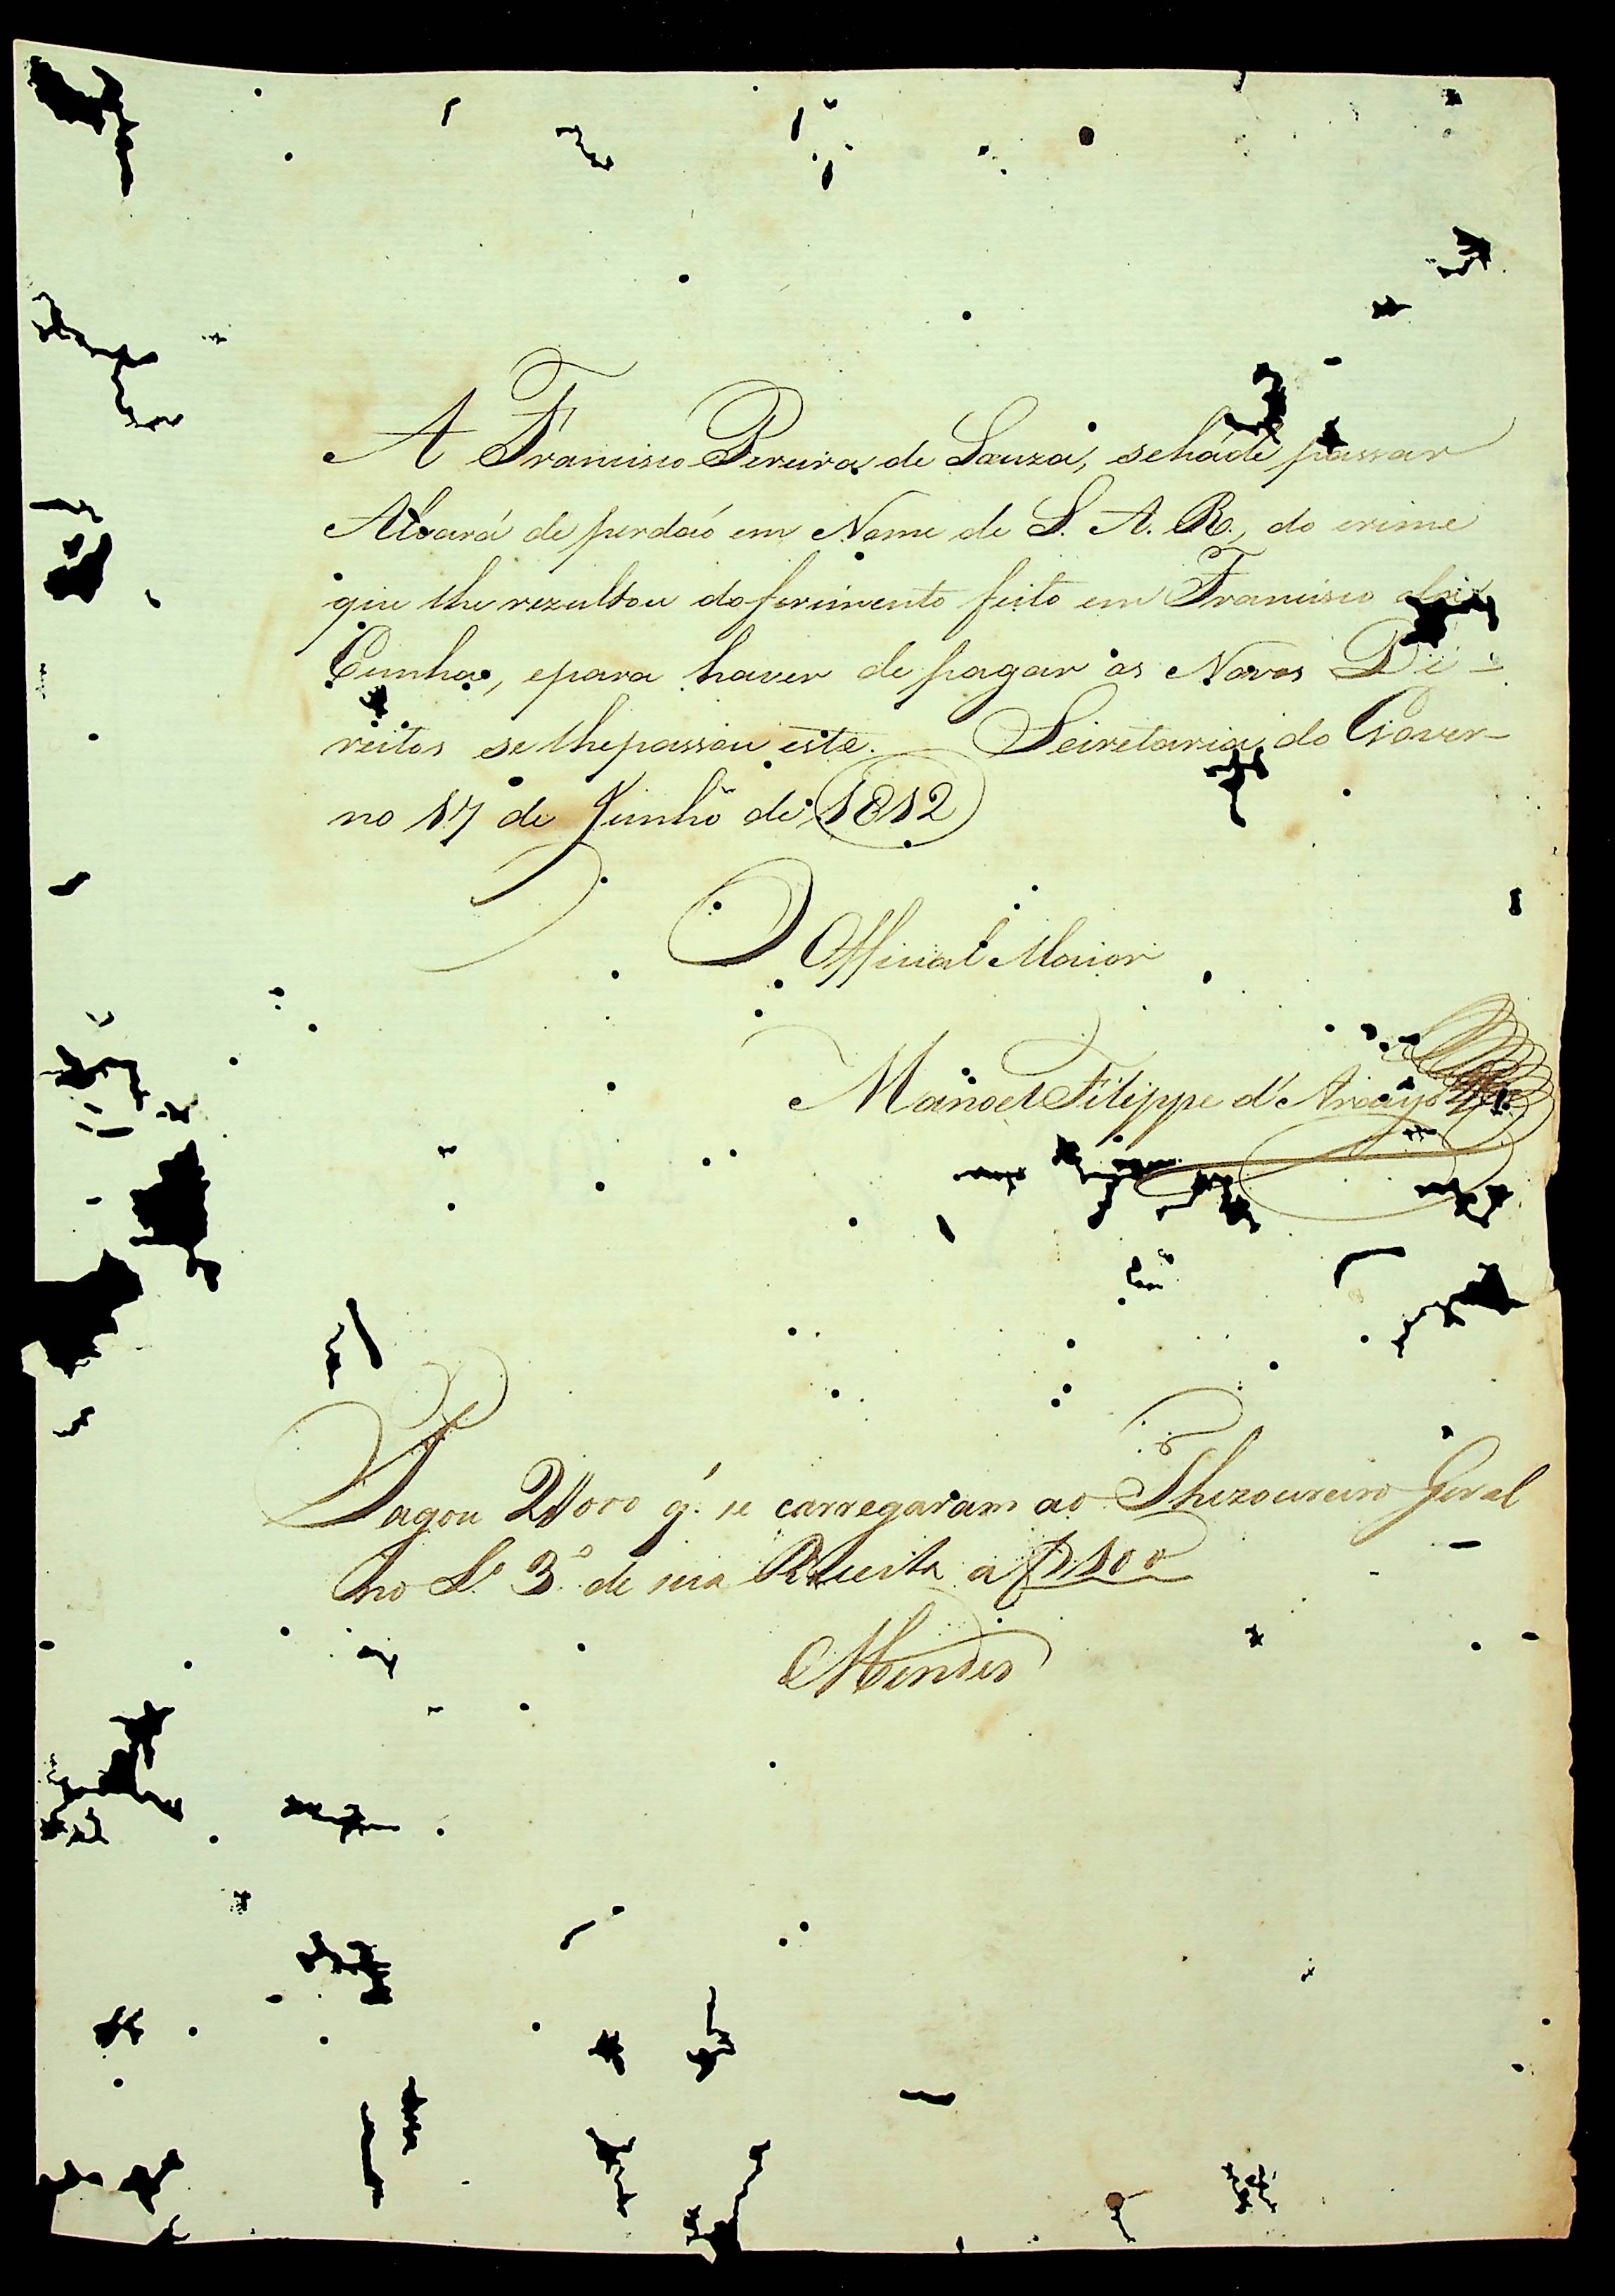 A Francisco Pereira de Souza, seháde passar
Alvará de perdaó em Nome de S. A. R., do crime
que lhe rezultou do ferimento feito em Francisco da
Cunha, epara haver de pagar os Novos Di-
reitos se lhepassou este. Secretaria do Gover-
no 17 de Junho de 1812
O Official Maior
Manoel Filippe d'Araujo
Pagou 2$000 q. se carregaram ao Thezoureiro Geral
no L.o 3.o de sua Receita a f 100
Mendes